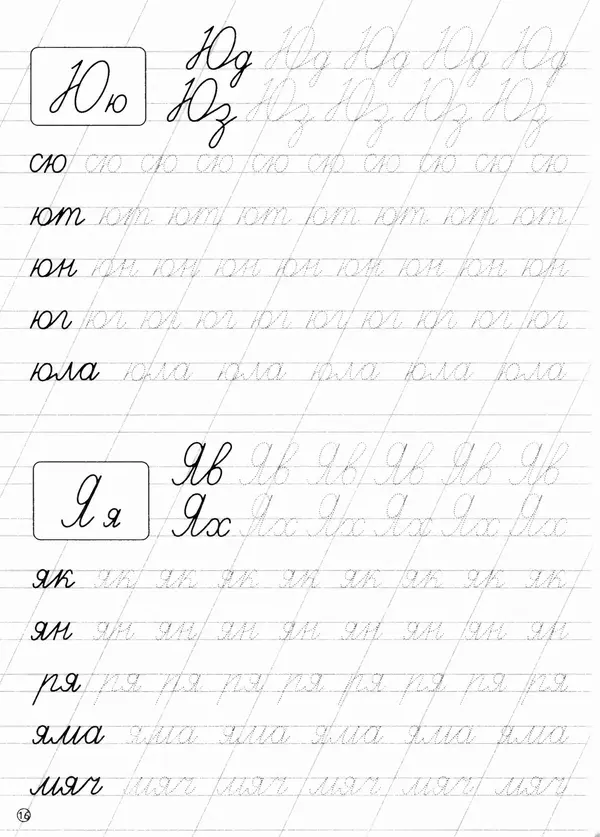 Юю
Юд Юд Юд Юд Юд
Юз Юз Юз Юз Юз
сю сю сю сю сю сю сю сю сю сю
ют ют ют ют ют ют ют ют
юн юн юн юн юн юн юн юн юн
юг юг юг юг юг юг юг юг юг юг
юла юла юла юла юла юла
Яя
Яв Яв Яв Яв Яв Яв
Ях Ях Ях Ях Ях Ях
як як як як як як як як як
ян ян ян ян ян ян ян ян ян
ря ря ря ря ря ря ря ря ря
яма яма яма яма яма яма
мяч мяч мяч мяч мяч мяч
16